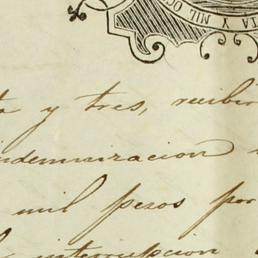 TA Y MIL OC
ta y tres, recibir
indemnizacion
mil pesos por
interrupcion